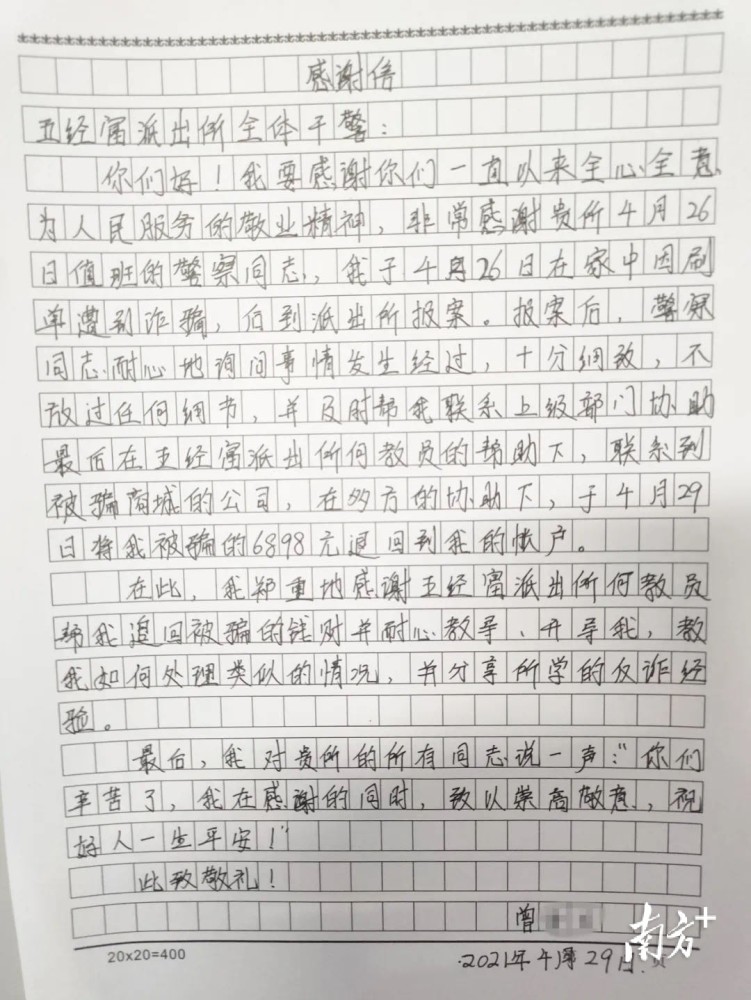 感谢信
五经富派出所全体干警：
你们好！我要感谢你们一直以来全心全意
为人民服务的敬业精神，非常感谢贵所4月26
日值班的警察同志，我于4月26日在家中因刷
单遭到诈骗，后到派出所报案。报案后，警察
同志耐心地询问事情发生经过，十分细致，不
放过任何细节，并及时帮我联系上级部门协助
最后在五经富派出所何教员的帮助下，联系到
被骗商城的公司，在多方的协助下，于4月29
日将我被骗的6898元退回到我的帐户。
在此，我郑重地感谢五经富派出所何教员
帮我追回被骗的钱财并耐心教导、开导我，教
我如何处理类似的情况，并分享所学的反诈经
验。
最后，我对贵所的所有同志说一声："你们
辛苦了，我在感谢的同时，致以崇高敬意，祝
好人一生平安！"
此致敬礼！
曾
南方+
20x20=400
2021年4月29日 页